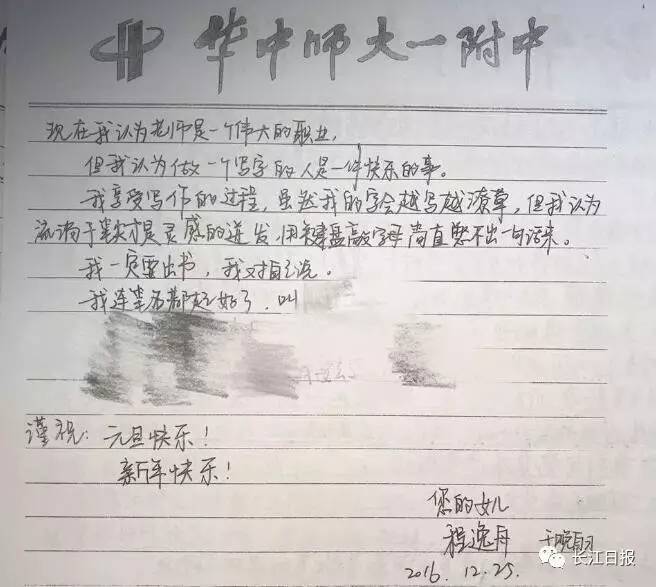 华中师大一附中
现在我认为老师是一个伟大的职业,
但我认为做一个写字的人是一件快乐的事。
我享受写作的过程,虽然我的字会越写越潦草,但我认为
流淌于笔尖才是灵感的迸发,用键盘敲字母简直憋不出一句话来。
我一定要出书,我对自己说。
我连笔名都起好了,叫
谨祝:元旦快乐!
新年快乐!
您的女儿
程逸舟 于晚自习
2016.12.25.
长江日报